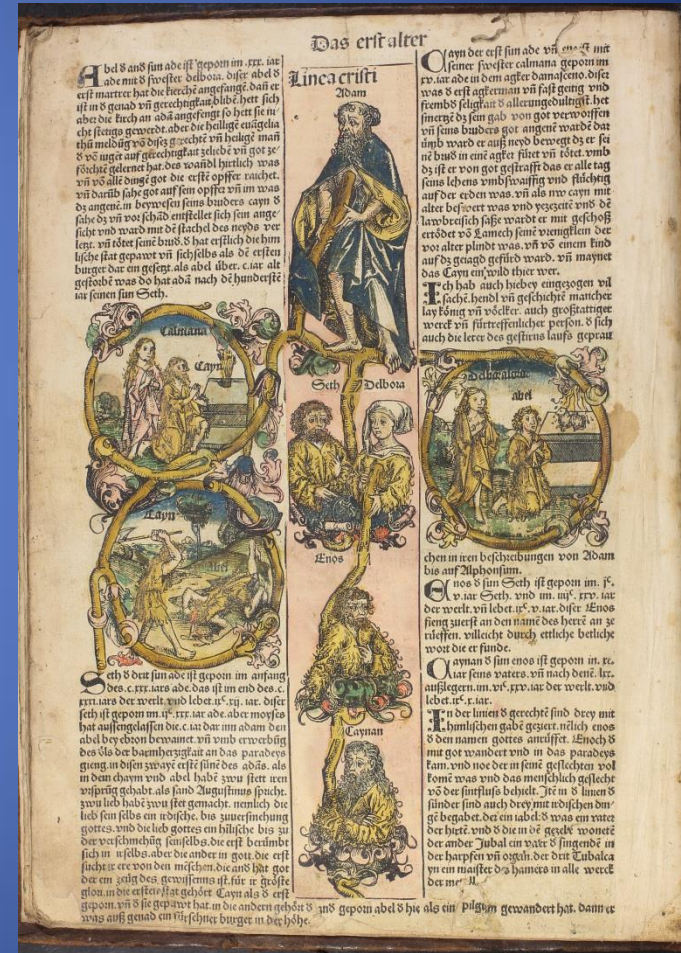 Das erst alter
Abel d and sun ade ist geporn im .xxx. iar
ade mit d swester delbora. diser abel d
erst martrer hat die kirchē angefangē. dañ er
ist in d genad vñ gerechtigkait blibē. hett sich
aber die kirch an adā angefengt so hett sie in
cht stetigs gewerdt. aber die heillige euāgelia
thū meldūg võ diseʒ gerechtē vñ heilige man
d võ iuget auf gerechtigkait zeliebē vñ got ze
förchtē gelernet hat. des wandl hirtlich was
vñ võ alle dingē got die erstē opffer raichet.
vñ darūb sahe got auf sein opffer vñ im was
dʒ angenē. in beywesen seins bruders cayn d
sahe dʒ vñ vor schād entstellet sich sein ange/
sicht vnd ward mit dē stachel des neyds ver
letʒt. vñ tötet seinē brud. d hat erstlich die him
lische stat gepawt vñ sichselbs als dē ersten
burger dar ein gesetʒt. als abel über .c. iar alt
gestorbē was do hat adā nach dē hunderstē
iar seinen sun Seth.
Calmana
Cayn
Cayn
Abel
Seth d drit sun ade ist geporn im anfang
des .c.xxx. iars ade. das ist im end des .c.
xxxi. iars der werlt. vnd lebet .ixᶜ. xij. iar. diser
hat aussengelassen die .c. iar dar inn adam den
abel bey ebron bewainet. vñ vmb erwerbūg
des öls der barmhertʒigkait an das paradeys
gieng. in disen zwayē erstē sūne des adās. als
in dem chaym vnd abel habē zwu stett iren
vrsprūg gehabt. als sand Augustinus spricht.
zwu lieb habē zwu stet gemacht. nemlich die
lieb sein selbs ein irdische. bis zuuersmehung
gottes. vnd die lieb gottes ein hīlische bis zu
der verschmehūg seinselbs. die erst berūmbt
sich in irselbs. aber die ander in gott. die erst
sucht ir ere von den mēschen. die and hat got
der ein zeūg des gewissens ist. für ir gröste
glori. in die erste stat gehört Cayn als d erst
geporn. vñ d sie gepawt hat. in die andern gehört d
was auß genad ein fürsehner burger in der höhe.
Linea cristi
Adam
Seth Delbora
Enos
Caynan
Cayn der erst sun ade vñ mit
seiner swester calmana geporn im
xv. iar ade in dem agker damasceno. diser
was d erst agkerman vñ fast geitig vnd
frembd seligkait d allerungedultigst. het
smertʒē dʒ sein gab von got verworffen
vñ seins bruders got angenē wardē dar
ūmb ward er auß neyd bewegt dʒ er sei
nē brud in einē agker füret vñ tötet. vmb
dʒ ist er von got gestrafft das er alle tag
seins lebens vmbswaiffig vnd flüchtig
auf der erden was. vñ als nw cayn mit
alter beswert was vnd
ertödet võ Lamech seinē vrenigklein der
vor alter plindt was. vñ võ einem kind
auf dʒ geiagd gefürd ward. vñ maynet
das Cayn ein wild thier wer.
Ich hab auch hiebey eingeʒogen vil
sachē. hendl vñ geschichtē mancher
lay kōnig vñ vöclker. auch großtattiger
werck vñ fürtreffenlicher person. d sich
auch die lerer des gestirns laufs geprau
delbora
abel
chen in iren beschreibungen von Adam
bis auf Alphonsum.
Enos d sun Seth ist geporn im. jᶜ.
v. iar Seth. vnd im. iijᶜ. xxv. iar
der werlt. vñ lebet. ixᶜ. v. iar. diser Enos
fieng zuerst an den namē des herrē an ze
rüeffen. villeicht durch ettliche betliche
wort die er funde.
Caynan d sun enos ist geporn in. xc.
iar seins vaters. vñ nach denē. lxx
außlegern. im. viᶜ. xxv. iar der werlt. vnd
lebet. ixᶜ. x. iar.
In der linien d gerechtē sind drey mit
himlischen gabē geʒiert. nēlich enos
d den namen gottes anrüffet. Enoch d
mit got wandert vnd in das paradeys
kam. vnd noe der in seinē geschlecten vol
komē was vnd das menschlich geslecht
võ der sintfluss behielt. Itē in d linien d
sünder sind auch drey mit irdischen din/
gē begabet. der ein iabel: d was ein vater
der hirtē. vnd d die in dē geʒelt wonetē
der ander Jubal ein vater d singendē in
der harpfen vñ orgeln. der drit Tubalca
yn ein maister dʒ hamers in alle werck
der
vnd geporn abel d hie als ein pilgrin gewandert hat. dann er